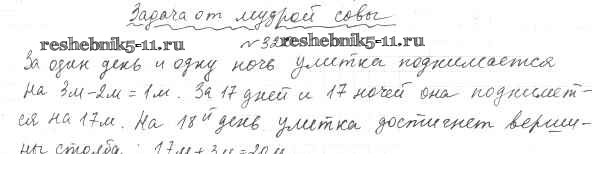 Задача от мудрой совы
reshebnik5-11.ru reshebnik5-11.ru
№32
За один день и одну ночь улитка поднимается
на 3м-2м=1м. За 17 дней и 17 ночей она поднимет-
ся на 17м. На 18й день улитка достигнет верши-
ны столба. 17м+3м=20м